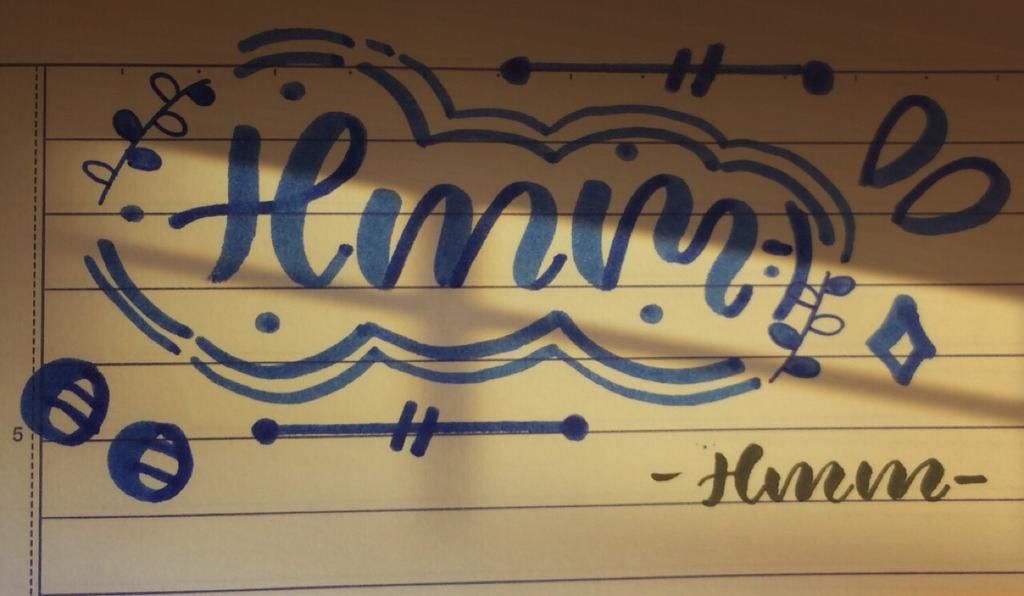 Hmm
5
- Hmm -